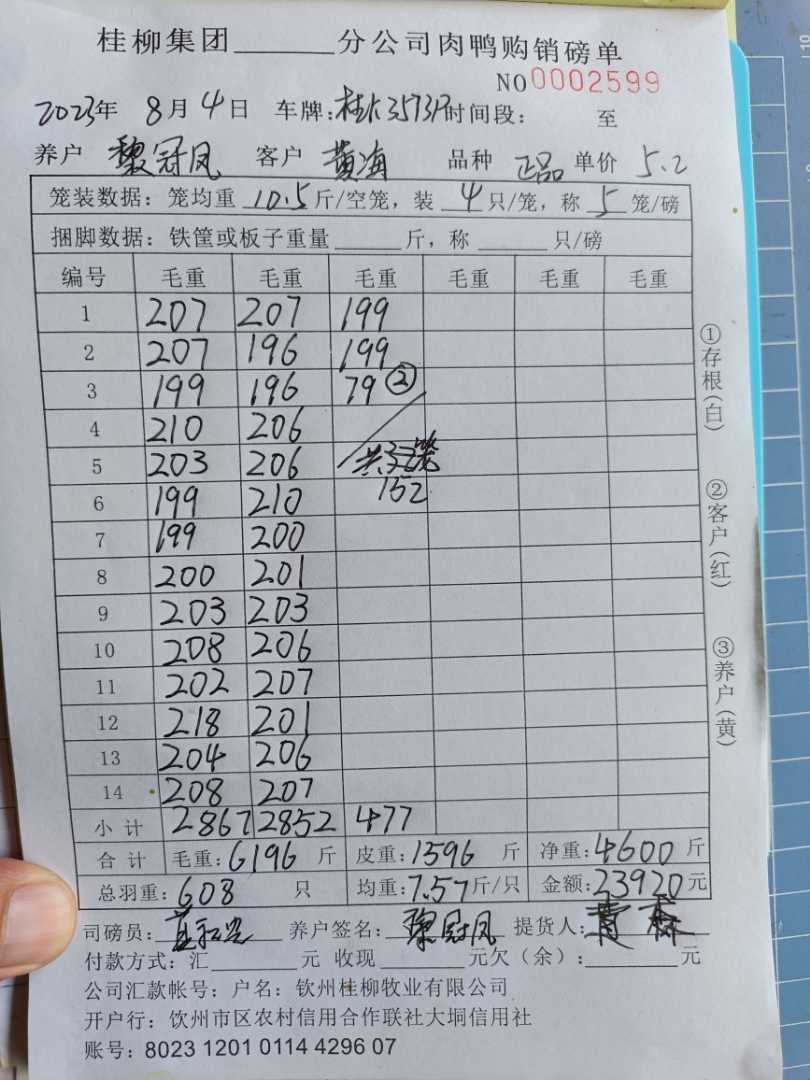 桂柳集团______分公司肉鸭购销磅单
NO 0002599
2023年 8月 4日 车牌: 时间段: 至
养户 黎冠凤 客户 黄海 品种 正品 单价 5.2
笼装数据: 笼均重 10.5 斤/空笼, 装 4 只/笼, 称 5 笼/磅
捆脚数据: 铁筐或板子重量______斤, 称______只/磅
编号 毛重 毛重 毛重 毛重 毛重 毛重
1 207 207 199
2 207 196 199
3 199 196 79 ②
4 210 206
5 203 206 共
6 199 210 152
7 199 200
8 200 201
9 203 203
10 208 206
11 202 207
12 218 201
13 204 206
14 208 207
小计 2867 2852 477
合计 毛重: 6196 斤 皮重: 1596 斤 净重: 4600 斤
总羽重: 608 只 均重: 7.57 斤/只 金额: 23920 元
司磅员: 养户签名: 黎冠凤 提货人:
付款方式: 汇______元 收现______元欠(余):______元
公司汇款帐号: 户名: 钦州桂柳牧业有限公司
开户行: 饮州市区农村信用合作联社大垌信用社
账号: 8023 1201 0114 4296 07
①存根(白)
②客户(红)
③养户(黄)